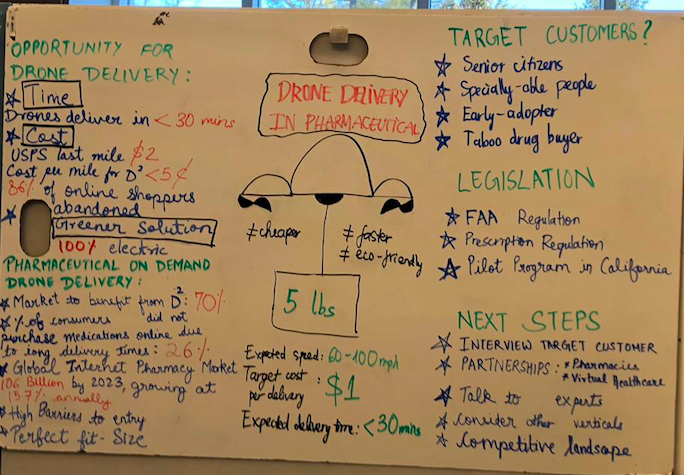 OPPORTUNITY FOR
DRONE DELIVERY:
Time
Drones deliver in < 30 mins
Cost
USPS last mile $2
Cost per mile for D² < 5¢
86% of online shoppers
abandoned
Greener Solution
100% electric
PHARMACEUTICAL ON DEMAND
DRONE DELIVERY:
Market to benefit from D²: 70%
% of consumers did not
purchase medications online due
to long delivery times: 26%
Global Internet Pharmacy Market
106 Billion by 2023, growing at
15.7% annually
High Barriers to entry
Perfect fit - Size
DRONE DELIVERY
IN PHARMACEUTICAL
# cheaper
# faster
# eco-friendly
5 lbs
Expected speed: 60-100 mph
Target cost
per delivery : $1
Expected delivery time: < 30 mins
TARGET CUSTOMERS?
Senior citizens
Specially-able people
Early-adopter
Taboo drug buyer
LEGISLATION
FAA Regulation
Prescription Regulation
Pilot Program in California
NEXT STEPS
INTERVIEW TARGET CUSTOMER
PARTNERSHIPS: * Pharmacies
* Virtual Healthcare
Talk to experts
Consider other verticals
Competitive landscape